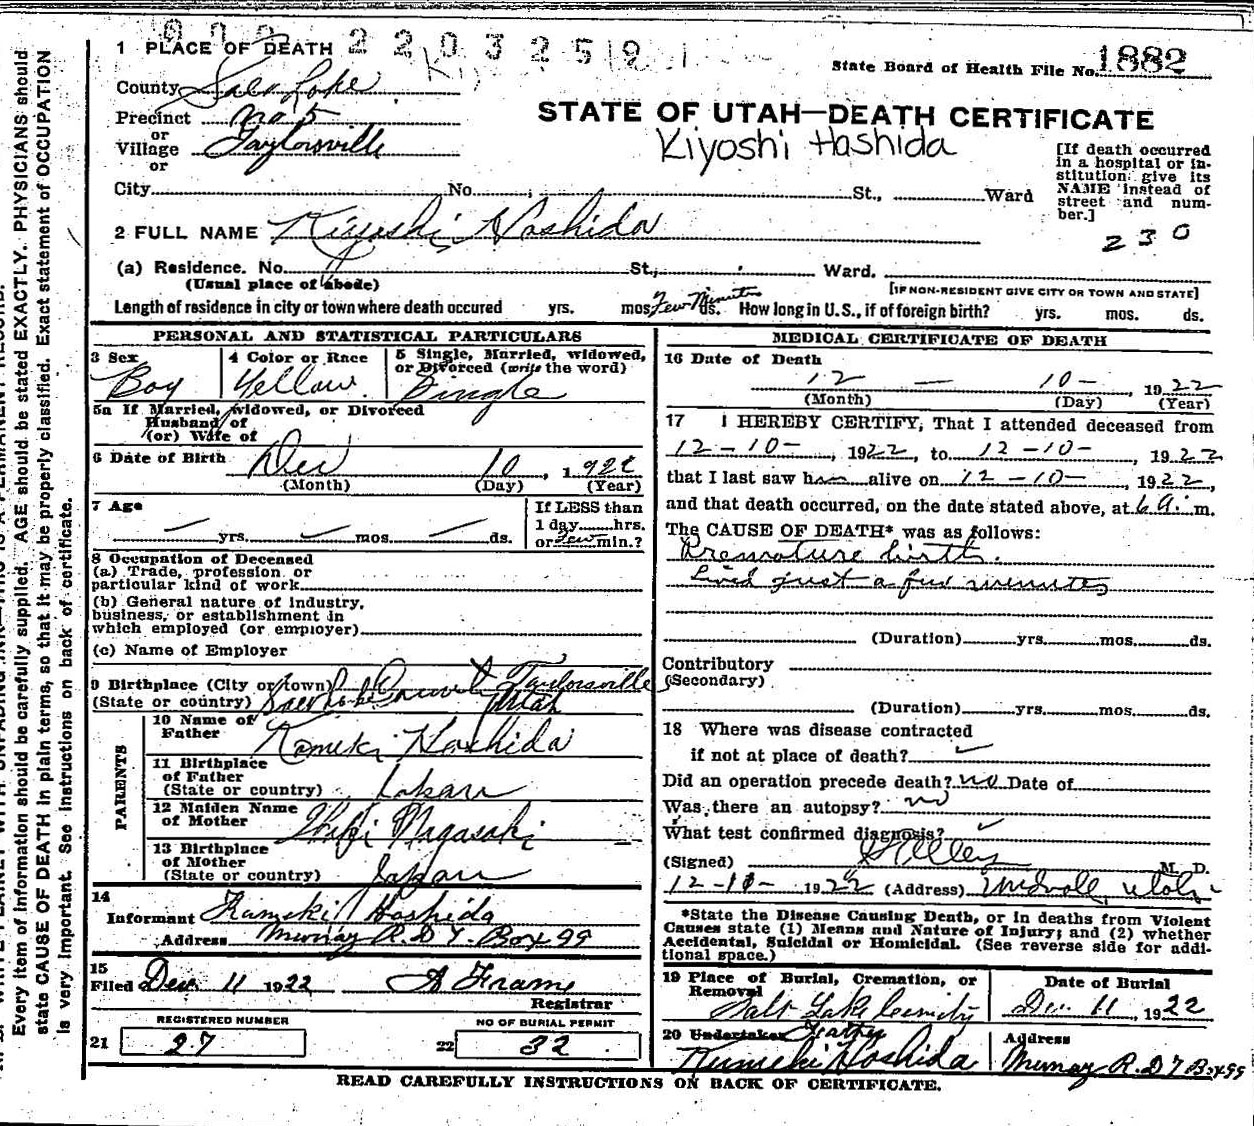 2203259
1 PLACE OF DEATH
State Board of Health File No. 1882
County Salt Lake
Precinct No 5
or
Village Taylorsville
or
STATE OF UTAH—DEATH CERTIFICATE
Kiyoshi Hashida
[If death occurred in a hospital or institution give its NAME instead of street and number.]
City No. St., Ward
230
2 FULL NAME Kiyoshi Hashida
(a) Residence. No. St., Ward.
(Usual place of abode)
[IF NON-RESIDENT GIVE CITY OR TOWN AND STATE]
Length of residence in city or town where death occured yrs. mos. Few Minutes ds. How long in U.S., if of foreign birth? yrs. mos. ds.
PERSONAL AND STATISTICAL PARTICULARS
3 Sex Boy
4 Color or Race Yellow
5 Single, Married, widowed, or Divorced (write the word) Single
5a If Married, widowed, or Divorced
Husband of
(or) Wife of
6 Date of Birth Dec 10, 1922
(Month) (Day) (Year)
7 Age — yrs. — mos. — ds.
If LESS than
1 day hrs.
or Few min.?
8 Occupation of Deceased
(a) Trade, profession or
particular kind of work
(b) General nature of industry,
business, or establishment in
which employed (or employer)
(c) Name of Employer
9 Birthplace (City or town) Taylorsville
(State or country) Salt Lake Utah
PARENTS
10 Name of Father Kameki Hashida
11 Birthplace of Father (State or country) Japan
12 Maiden Name of Mother Nagasaki
13 Birthplace of Mother (State or country) Japan
14
Informant Kameki Hashida
Address Murray R.D 7. Box 99
15
Filed Dec 11 1922 A Frame
Registrar
REGISTERED NUMBER
21 27
NO OF BURIAL PERMIT
22 32
MEDICAL CERTIFICATE OF DEATH
16 Date of Death
12 — 10 —, 1922
(Month) (Day) (Year)
17 I HEREBY CERTIFY, That I attended deceased from
12-10-, 1922, to 12-10-, 1922
that I last saw him alive on 12-10-, 1922,
and that death occurred, on the date stated above, at 6 a. m.
The CAUSE OF DEATH* was as follows:
Premature birth.
Lived just a few minutes
(Duration) yrs. mos. ds.
Contributory
(Secondary)
(Duration) yrs. mos. ds.
18 Where was disease contracted
if not at place of death?
Did an operation precede death? no Date of
Was there an autopsy? no
What test confirmed diagnosis?
(Signed) M. D.
1922 (Address) Midvale, Utah
*State the Disease Causing Death, or in deaths from Violent
Causes state (1) Means and Nature of Injury; and (2) whether
Accidental, Suicidal or Homicidal. (See reverse side for addi-
tional space.)
19 Place of Burial, Cremation, or Removal
Salt Lake
Date of Burial
Dec 11, 1922
20 Undertaker Father
Kameki Hashida
Address
Murray R.D 7 Box 99
READ CAREFULLY INSTRUCTIONS ON BACK OF CERTIFICATE.
Every item of information should be carefully supplied. AGE should be stated EXACTLY. PHYSICIANS should
state CAUSE OF DEATH in plain terms, so that it may be properly classified. Exact statement of OCCUPATION
is very important. See instructions on back of certificate.